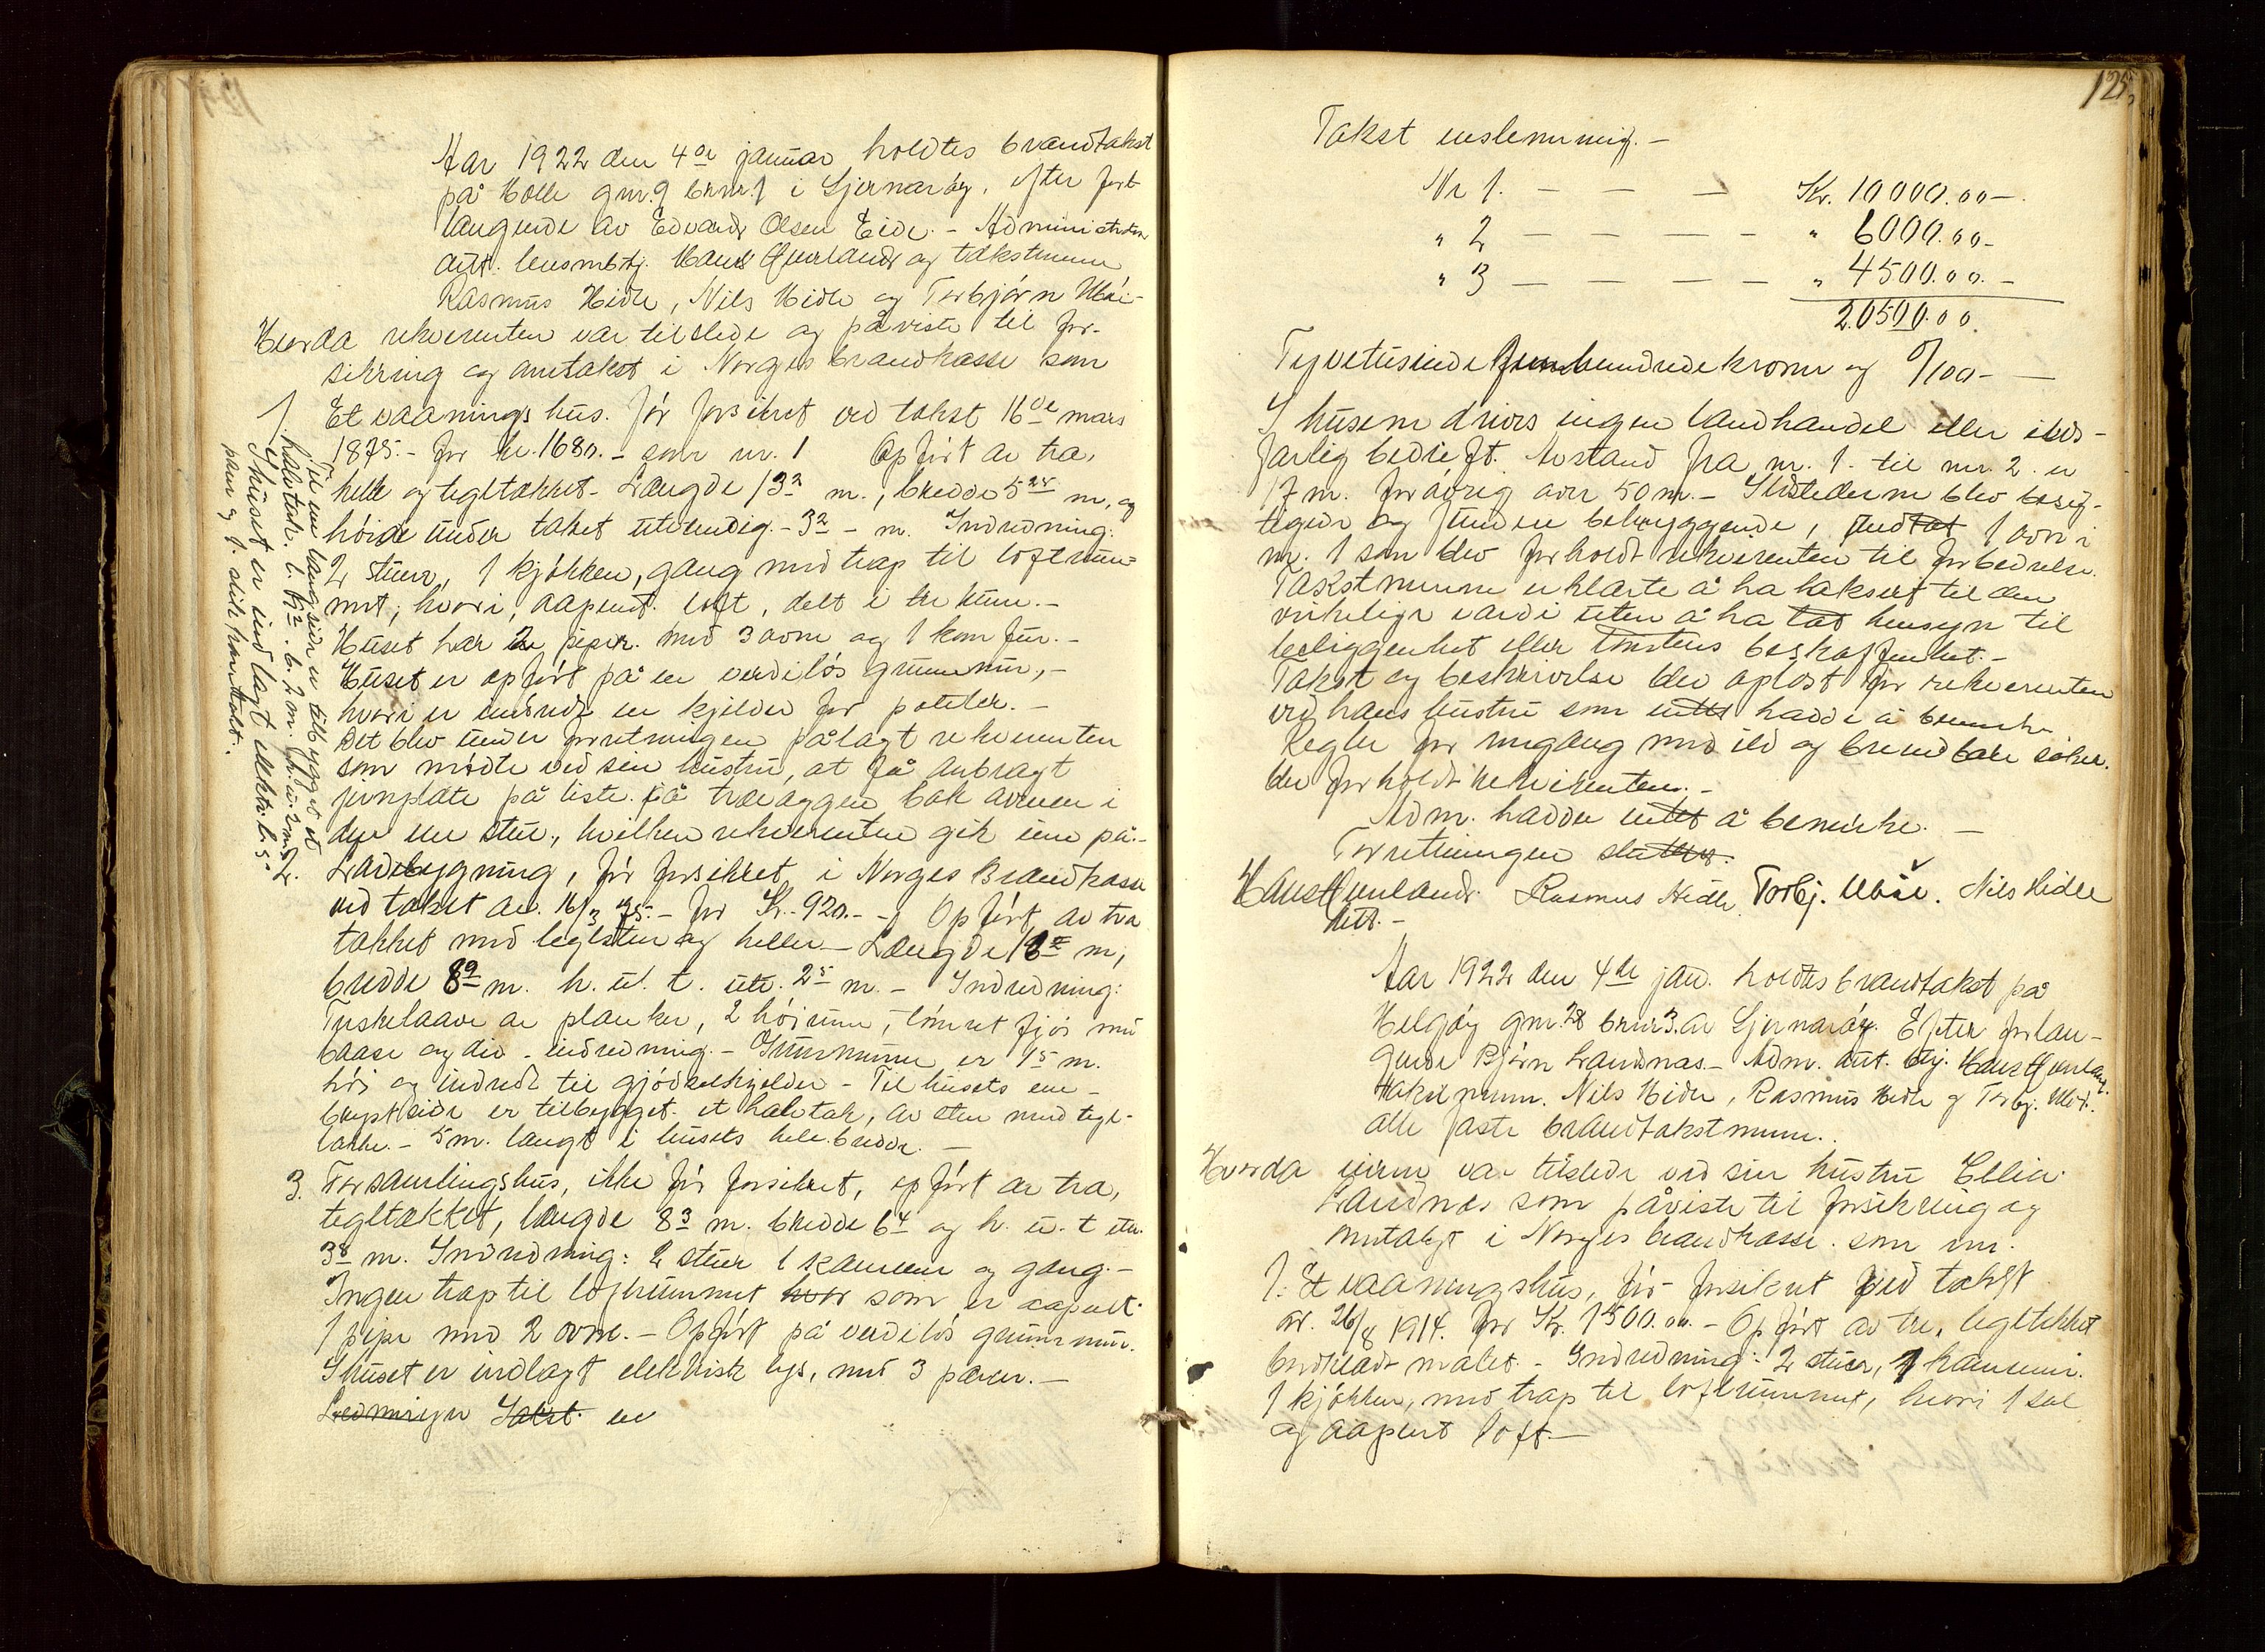 Aar 1922 den 4de januar holdtes brandtakst
på Holle gnr. 9 brnr. 1 i Sjernarøy. efter for-
langende av Edvard Olsen Eide. - Administrator
aut. lensmbtj. Hans Hjerlandr og takstmenn
Rasmus Hidle, Nils Hidle og Torbjørn Ubøe
Hvorda rekvirenten var tilstede og påviste til for-
sikring og omtakst i Norges brandkasse som
1. Et vaaningshus. før forsikret ved takst 16de mars
1875. - for kr. 1680. - som nr. 1 Opført av træ,
helle og tegltækket. Længde 13² m., bredde 5²⁵ m, og
høide under taket utvendig. - 3² - m. Indredning:
2 stuer, 1 kjøkken, gang med trap til loftrum-
met; hvori, aapent loft, delt i tre rum. -
Huset har 2 piper. med 3 ovne og 1 komfur. -
Huset er opført på en verdiløs grunnmur, -
hvori er indredt en kjelder for poteter. -
Det blev under forretningen pålagt rekvirenten
som mødte ved sin hustru, at få anbragt
jernplate på liste på trævæggen bak ovnen i
den ene stue, hvilken rekvirenten gik inn på. -
2. Ladebygning, før forsikret i Norges Brandkasse
ved takst av. 16/3 75. - for Kr. - 920. - - Opført av træ
tækket med teglsten og heller. - Længde 18² m,
bredde 8⁹ m. h. u. t. utv. 2⁵ m. - Indredning:
Treskelaave av planker, 2 høirum, tømret fjøs med
baase og div. indredning. - Grunmuren er 1⁵ m.
høi og indredt til gjødselkjelder - Til husets ene
brystside er tilbygget et halvtak, av sten med tegl-
tække. - 5 m. langt i husets hele bredde. -
3. Forsamlingshus, ikke før forsikret, opført av træ,
tegltækket, længde 8³ m. bredde 6⁴ og h. u. t utv.
3⁸ m. Indredning: 2 stuer 1 kammer og gang. -
Ingen trap til loftrummet hvor som er aapent.
1 pipe med 2 ovne. - Opført på verdiløs grunnmur.
I huset er indlagt elektrisk lys, med 3 pærer. -
Takst en
Til ene langside er tilbygget et
halvtak. l. 6² . b. 2 m. h. u.
I huset er indlagt elektr. l. 5
pærer og 1. stikkontakt.
125.
Takst enstemmig. -
Nr 1. - - - Kr. 10000.00 -
" 2 - - - - " 6000.00 -
" 3 - - - - " 4500.00. -
20500.00.
Tyvetusindefemhundredekroner og 0/100 -
I husene drives ingen landhandel eller ilds-
farlig bedrift. Avstand fra nr. 1. til nr. 2. er
17 m. forøvrig over 50 m. - Ildstederne blev besig-
tiget og funden betryggende, undtat 1 ovn i
nr. 1 som blev forholdt rekvirenten til forbedrelse.
Takstmenne erklærte å ha taksert til den
virkelige værdi uten å ha tat hensyn til
beliggenhet eller tomtens beskaffenhet. -
Takst og beskrivelse blev oplæst for rekvirenten
ved hans hustru som intet hadde å bemerke
Regler for omgang med ild og brendbare saker.
blev forholdt rekvirenten. -
Adm. hadde intet å bemerke. -
Forretningen sluttes.
Hans Hjerlandr. Rasmus Hidle. Torbj. Ubøe. Nils Hidle
aut. -
Aar 1922 den 4de jan. holdtes brandtakst på
Helgøy gnr. 28 brnr 3. av Sjernarøy. Efter forlan-
gende Bjørn Landnæs. - Adm. aut. btj. Hans Hjerlandr.
takstmenn. Nils Hidle, Rasmus Hidle og Torbj. Ubøe.
alle faste brandtakstmenn.
Hvorda eieren var tilstede ved sin hustru
Landnæs som påviste til forsikring og
omtakst i Norges brandkasse. som nr.
1. Et vaaningshus, før forsikret ved takst
av. 26/8 1914. for Kr. 1500.00. - Opført av træ, tegltækket
bordklædt malet. - Indredning: 2 stuer, 1 kammer.
1 kjøkken, med trap til loftrummet, hvori 1 sal
og aapent loft. -